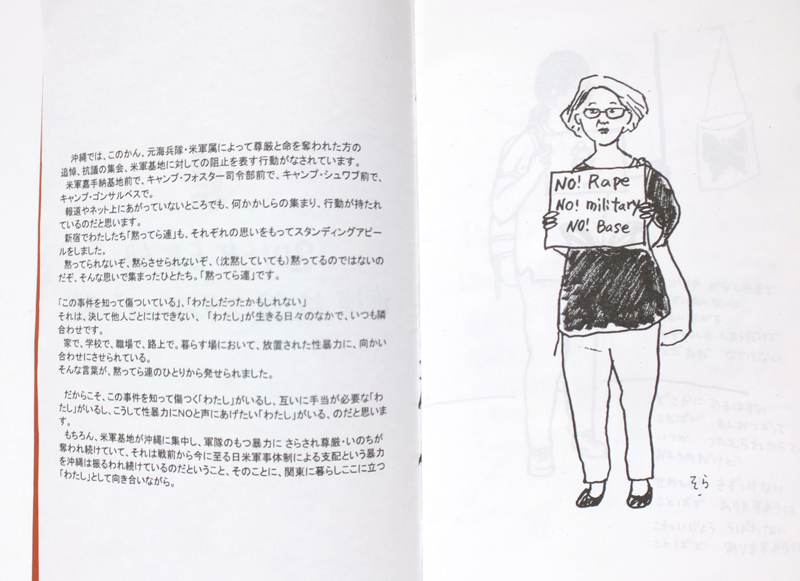 沖縄では、このかん、元海兵隊・米軍属によって尊厳と命を奪われた方の
追悼、抗議の集会、米軍基地に対しての阻止を表す行動がなされています。
米軍嘉手納基地前で、キャンプ・フォスター司令部前で、キャンプ・シュワブ前で、
キャンプ・ゴンサルベスで。
報道やネット上にあがっていないところでも、何かかしらの集まり、行動が持たれ
ているのだと思います。
新宿でわたしたち「黙ってら連」も、それぞれの思いをもってスタンディングアピー
ルをしました。
黙ってられないぞ、黙らさせられないぞ、(沈黙していても)黙ってるのではないの
だぞ、そんな思いで集まったひとたち。「黙ってら連」です。
「この事件を知って傷ついている」、「わたしだったかもしれない」
それは、決して他人ごとにはできない、「わたし」が生きる日々のなかで、いつも隣
合わせです。
家で、学校で、職場で、路上で。暮らす場において、放置された性暴力に、向かい
合わせにさせられている。
そんな言葉が、黙ってら連のひとりから発せられました。
だからこそ、この事件を知って傷つく「わたし」がいるし、互いに手当が必要な「わ
たし」がいるし、こうして性暴力にNOと声にあげたい「わたし」がいる、のだと思いま
す。
もちろん、米軍基地が沖縄に集中し、軍隊のもつ暴力に さらされ尊厳・いのちが
奪われ続けていて、それは戦前から今に至る日米軍事体制による支配という暴力
を沖縄は振るわれ続けているのだということ、そのことに、関東に暮らしここに立つ
「わたし」として向き合いながら。
NO! Rape
NO! military
NO! Base
そら